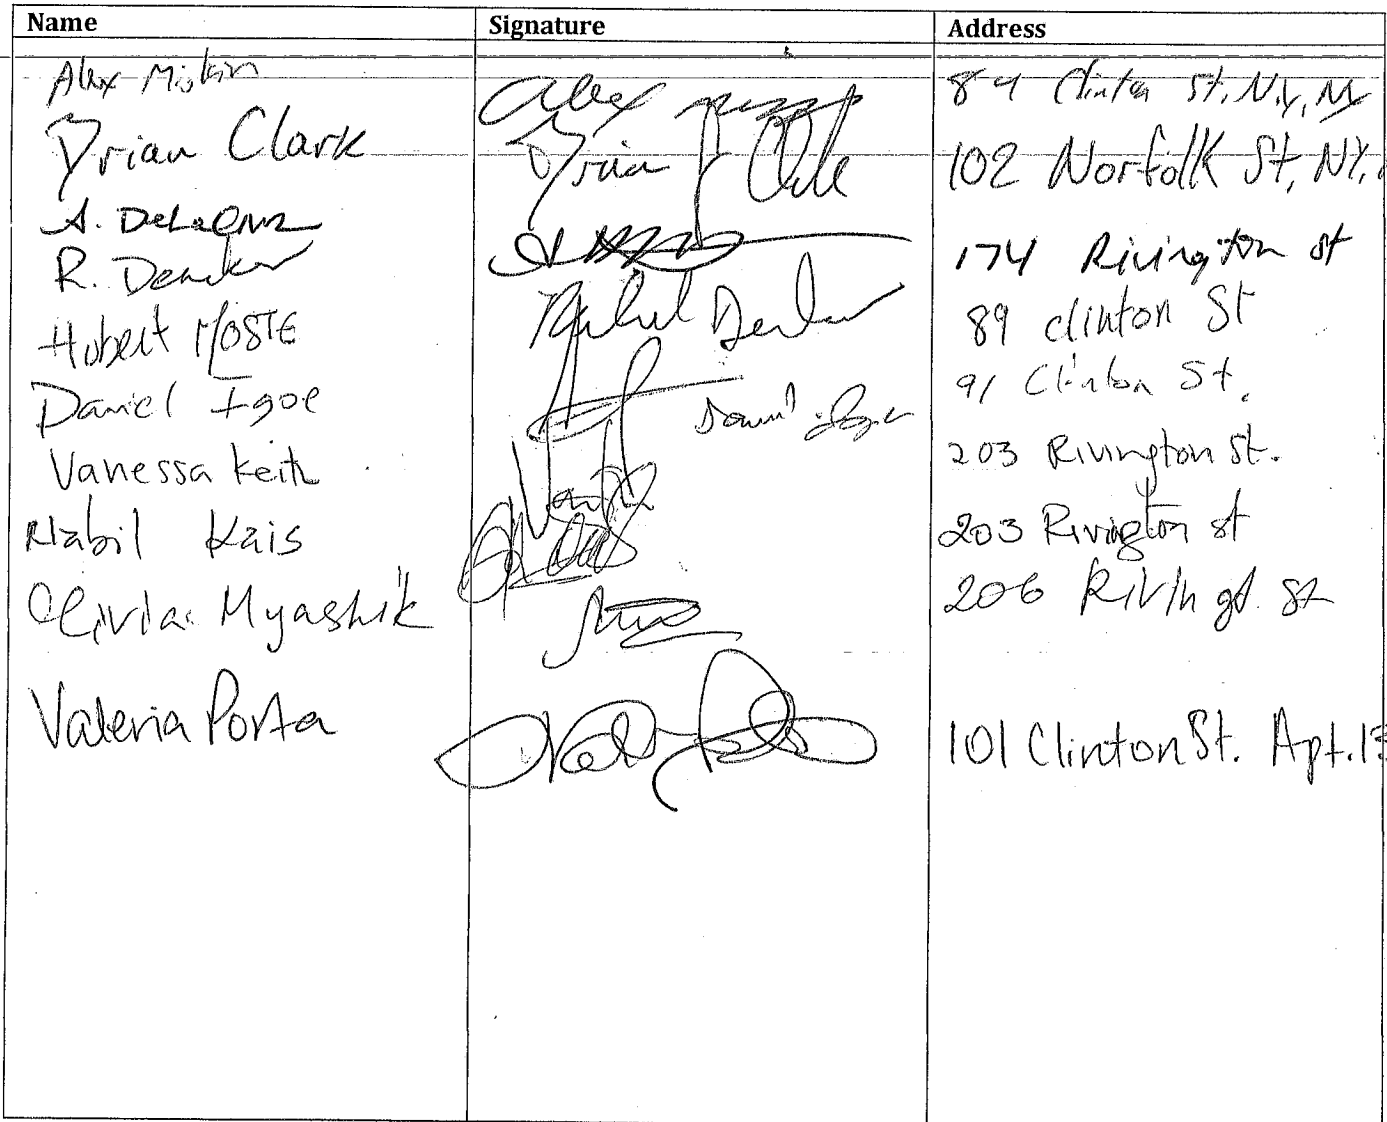 Name Signature Address
Alex Miskin Alex 84 Clinton St, N.Y, NY
Brian Clark Brian J Clark 102 Norfolk St, NY,
A. DeLaCruz 174 Rivington st
R. Denker Denker 89 clinton St
Hubert 91 Clinton St.
Daniel Igoe Daniel Igoe
Vanessa Keith 203 Rivington St.
Nabil Kais 203 Rivington st
Olivia Myashik 206 Rivingt. St
Valeria Porta 101 Clinton St. Apt.13